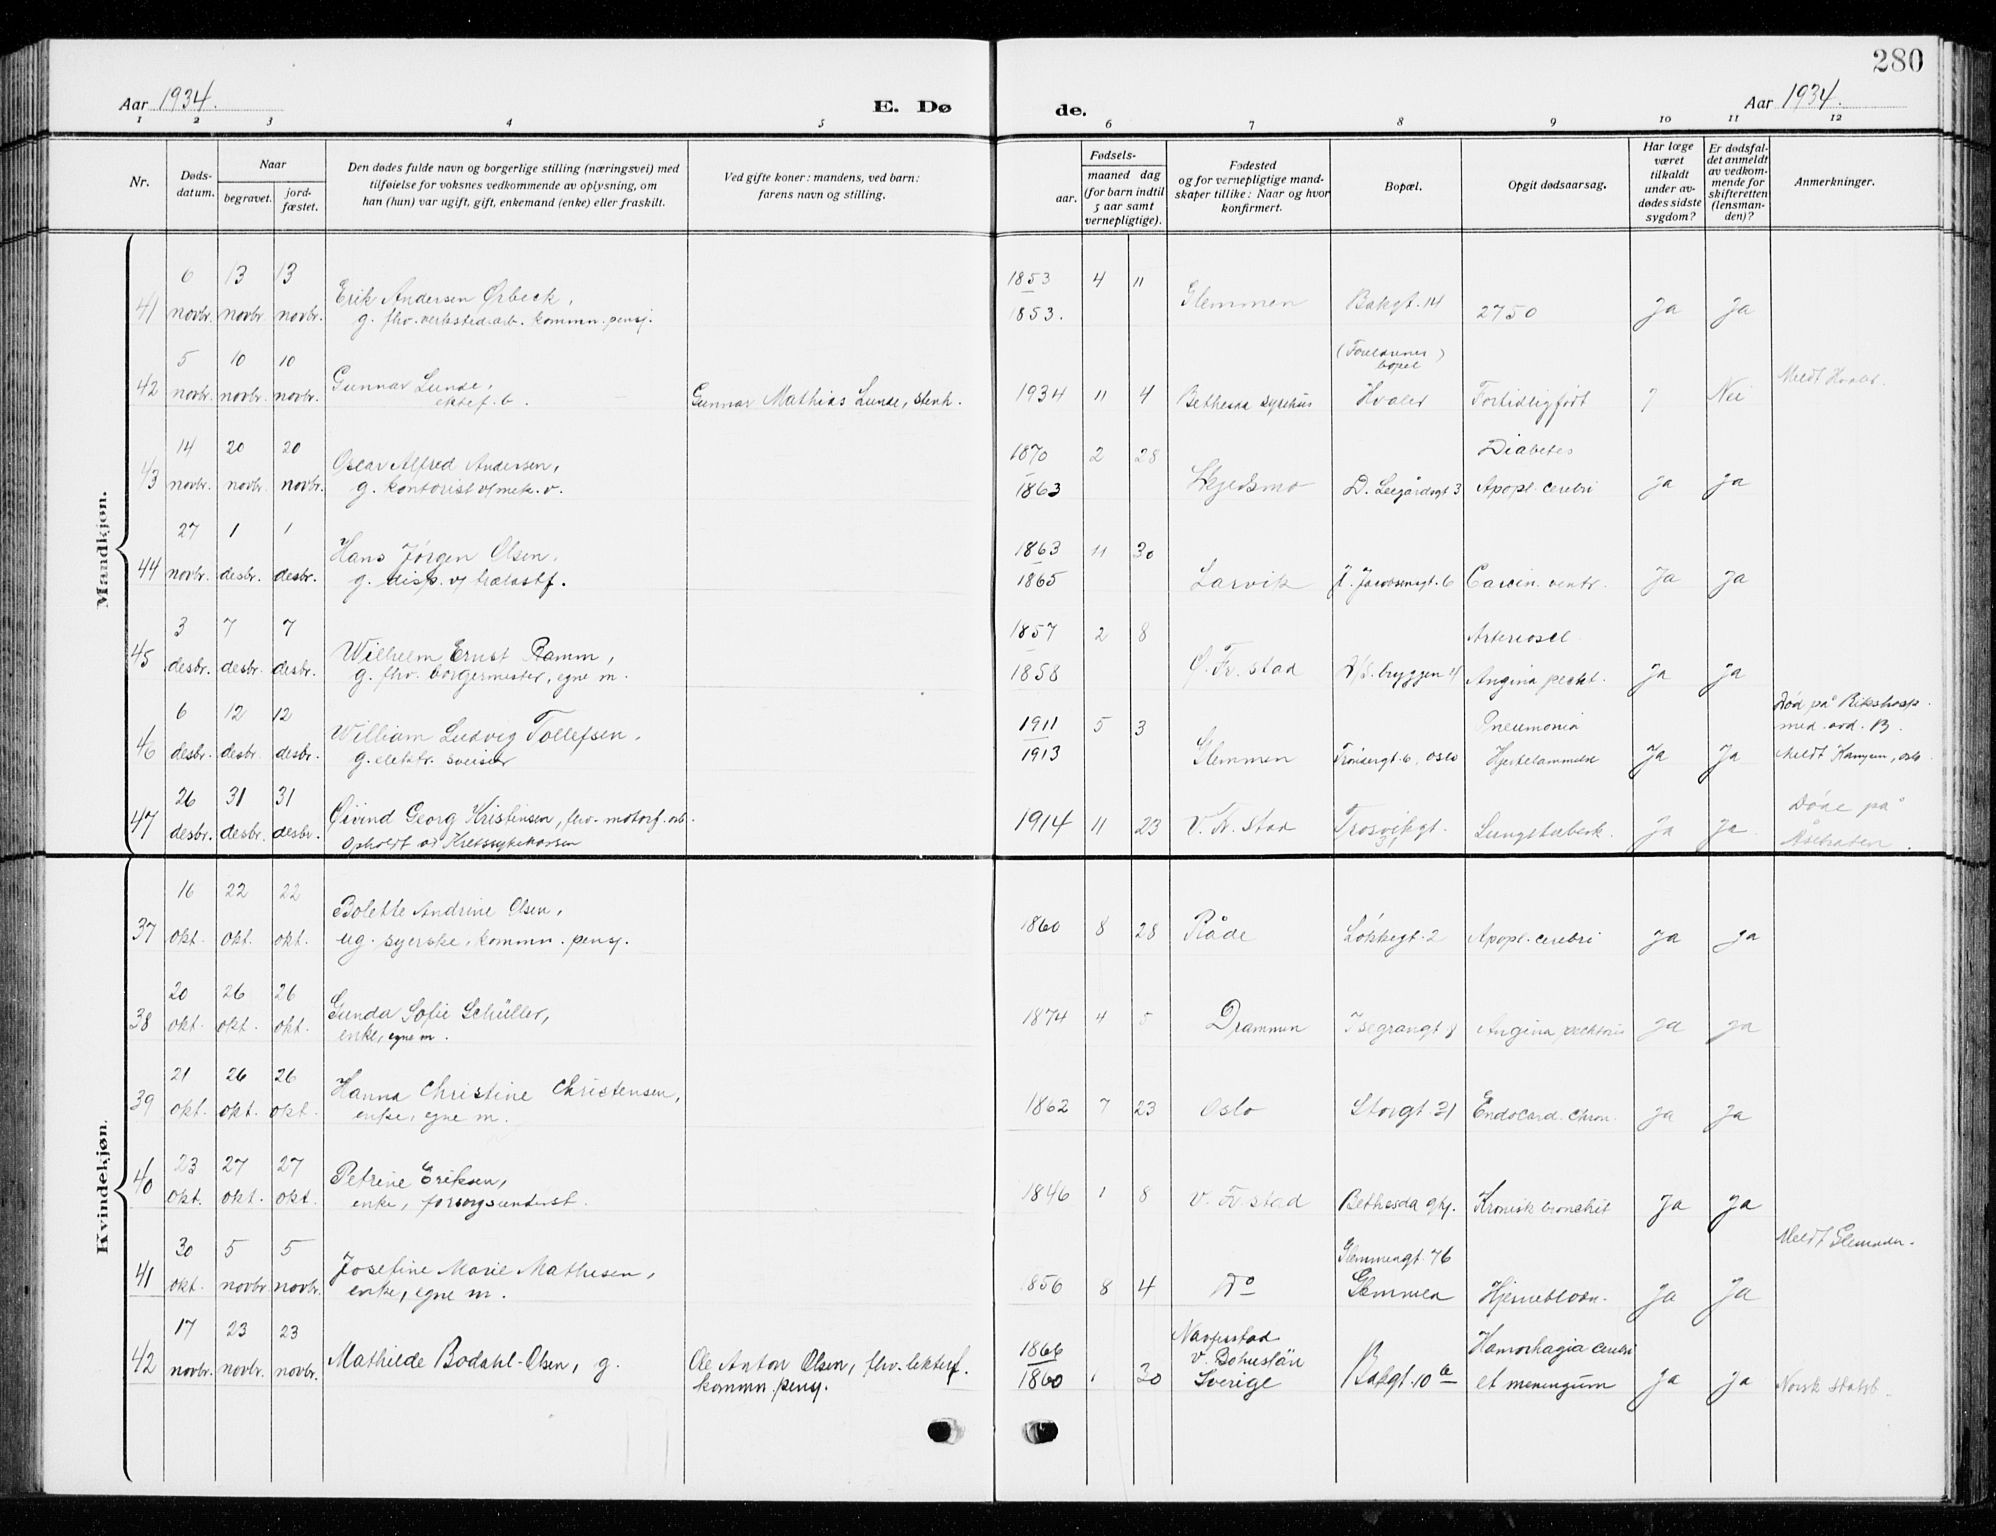 280
Aar 1934. E. Dø de. Aar 1934.
1 2 3 4 5 6 7 8 9 10 11 12
Nr. Dødsdatum. Naar begravet. jordfæstet. Den dødes fulde navn og borgerlige stilling (næringsvei) med tilføielse for voksnes vedkommende av oplysning, om han (hun) var ugift, gift, enkemand (enke) eller fraskilt. Ved gifte koner: mandens, ved barn: farens navn og stilling. Fødsels- aar. maaned dag (for barn indtil 5 aar samt vernepligtige). Fødested og for vernepligtige mandskaper tillike: Naar og hvor konfirmert. Bopæl. Opgit dødsaarsag. Har læge været tilkaldt under avdødes sidste sygdom? Er dødsfaldet anmeldt av vedkommende for skifteretten (lensmanden)? Anmerkninger.
Mandkjøn.
6 13 13 1853 4 11
41 novbr. novbr. novbr. Erik Andersen Ørbeck, 1853. Glemmen Bakgt. 14 2750 Ja Ja
g. fhv. verkstedarb. kommn. pensj.
5 10 10 (Foreldrenes bopel)
42 novbr. novbr. novbr. Gunnar Lunde, Gunnar Mathias Lunde, stenh. 1934 11 4 Bethesda sykehus Hvaler Fortidligfødt 7 Nei Meldt Hvaler.
ektef. b.
14 20 20 1870 2 28 Diabetes
43 novbr. novbr. novbr. Oscar Alfred Andersen, 1863 Skjedsmo D. Leegårdsgt 3 Apopl. cerebri Ja Ja
g. kontorist v/ mek. v.
27 1 1 1863 11 30
44 novbr. desbr. desbr. Hans Jørgen Olsen, 1865 Larvik J. Jacobsensgt. 6 Carcin. ventr. Ja Ja
g. disp. v/ trelastf.
3 7 7 1857 2 8 Arterioscl.
45 desbr. desbr. desbr. Wilhelm Ernst Ramm, 1858 Ø. Fr. stad bryggen Angina pectt. Ja Ja
g. fhv. borgermester, egne m.
6 12 12 1911 5 3 Pneumonia Død på Rikshosp. med. avd. B.
46 desbr. desbr. desbr. William Ludvig Tollefsen, 1913 Glemmen oslo Hjertelammelse Ja Ja Meldt oslo.
g. elektr. sveiser
26 31 31
47 desbr. desbr. desbr. Øivind Georg Kristensen, fhv. motorf. arb. 1914 11 23 V. Fr. stad Trosvikgt. Lungetuberk. Ja Ja. Døde på
Opholdt av Kretssykekassen
Kvindekjøn.
16 22 22
37 okt. okt. okt. Bolette Andrine Olsen, 1860 8 28 Råde Løkkegt. 2 Apopl. cerebri Ja Ja
ug. syerske, kommn. pensj.
20 26 26
38 okt. okt. okt. Gunda Sofie Schüller, 1874 4 5 Drammen Isegrangt 8 Angina pectoris Ja Ja
enke, egne m.
21 26 26
39 okt. okt. okt. Hanna Christine Christensen, 1862 7 23 Oslo Storgt. 21 Endocard. chron. Ja Ja
enke, egne m.
23 27 27
40 okt. okt. okt. Petrine Eriksen, 1846 1 8 V. Fr. stad Bethesda Kronisk bronchit Ja Ja
enke, forsorgsunderst.
30 5 5 Glemmengt. 76 Meldt
41 okt. novbr. novbr. Josefine Marie Mathisen, 1856 8 4 Do Glemmen Hjerneblødn. Ja Ja
enke, egne m.
17 23 23 1866 Naverstad Hamorhagia cerebri
42 novbr. novbr. novbr. Mathilde Bodahl-Olsen, g. Ole Anton Olsen, fhv. 1860 1 30 v. Bohuslän Sverige Bakgt. 10 b et meningum Ja Ja Norsk statsb.
kommn. pensj.